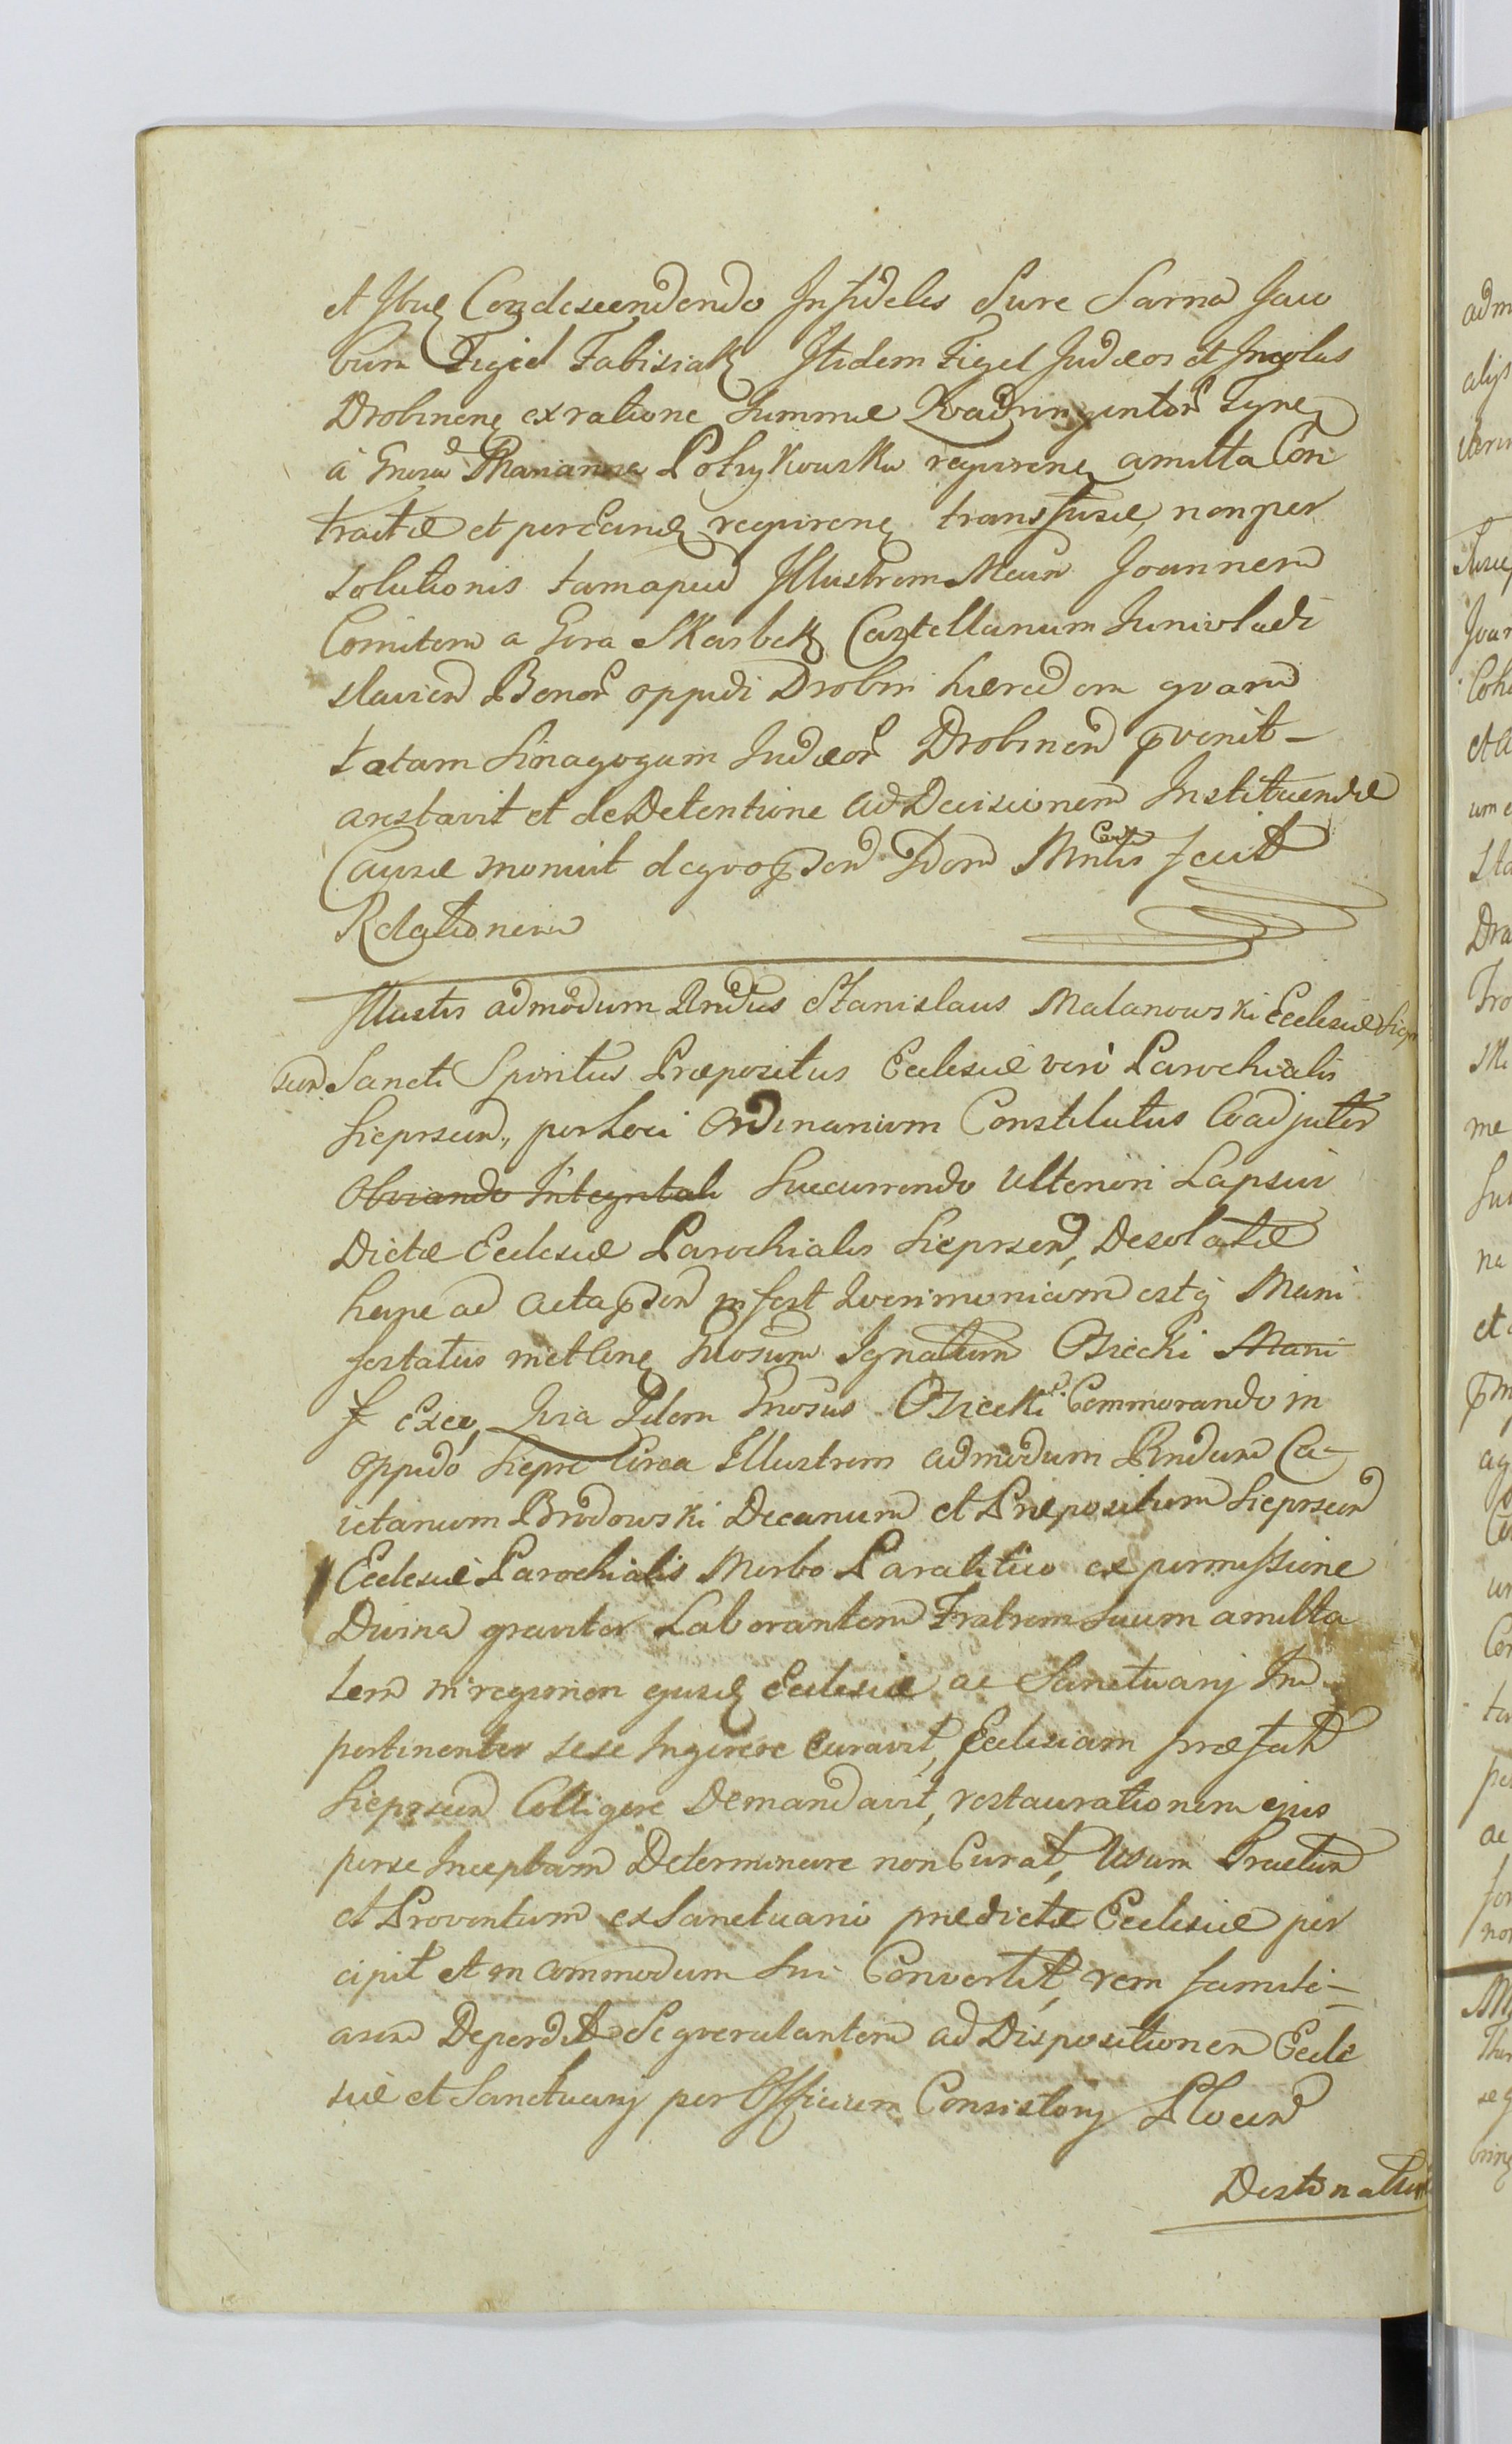 et Condescendendo Infideles Sure Sarna Jaco
bum Figiel Fabisiak Itidem Figel Judæos et Incolas
Drobinen ex ratione Summæ Quadringentor Tynf
á Gnosa Marianna Potrykowska reqviren amulta Con
tractæ et per Eand reqviren transfusæ, non per
solutionis tam apud Illustrem Mcum Joannem
Comitem a Gora Skarbek Castellanum Junivladi
slavien Bonor oppidi Drobin hæredem qvam
totam Sinagogam Judæor Drobinen pvenit-
arestavit et de Detentione ad Decisionem Instituendæ
Causæ monuit de qvo psen Idem Mntlis Cast fecit
Relationem
Illustis admodum Rndus Stanislaus Malanowski Ecclesiæ Siepr
scen Sancti Spiritus Præpositus Ecclesiæ veró Parochialis
Sieprscen, per Loci Ordinarium Constitutus Coadjutor
Obviando Integritati Succurrendo Ulteriori Lapsui
Dictæ Ecclesiæ Parochialis Sieprscen, Desolatæ
hunc ad acta psen infert Qverimoniam estq Mani
festatus met Cone Gnosum Ignatium Osiecki Mani
f Exeo Qvia Idem Gnosus Osiecki Commorando in
oppido Siepre Circa Illustrem admodum Rndum Ca-
ietanum Brodowski Decanum et Præpositum Sieprscen
Ecclesiæ Parochialis Morbo Paralitico ex permissione
Divina graviter Laborantem Fratrem suum amulta
tem in regimen ejusd Ecclesiæ ac Sanctuarij Im
pertinenter sese Ingerere curavit, Ecclesiam præfat
Sieprscen Colligere Demandavit, restaurationem ejus
per se Inceptam Determinare non Curat, Usum Fructum
et Proventum ex Sanctuario prædictæ Ecclesiæ per
cipit et in commodum Sui Convertit, rem famili-
arem Deperdit Se qverulantem ad Dispositionem Eccle
siæ et Sanctuarij per Officium Consistorij Plocen
Destinatum